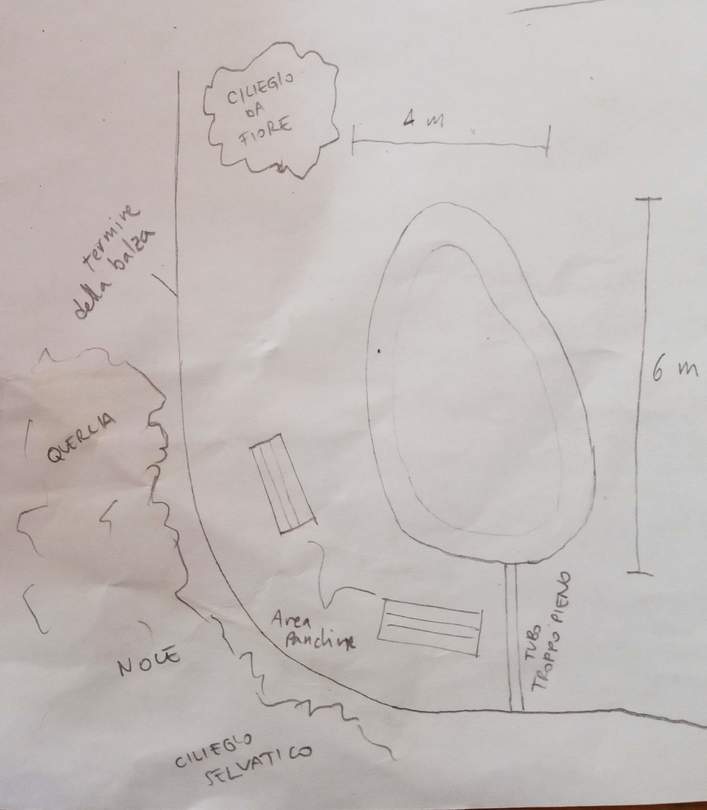 CILIEGIO
DA
FIORE
4 m
termine
della balza
6 m
QUERCIA
Area
Panchine
TUBO
TROPPO PIENO
NOCE
CILIEGIO
SELVATICO